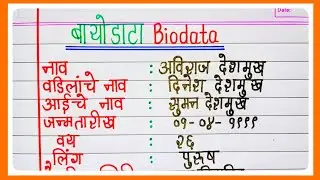 Date:
बायोडाटा Biodata
नाव : अविराज देशमुख
वडिलांचे नाव : दिनेश देशमुख
आईचे नाव : सुमन देशमुख
जन्मतारीख : ०१-०४-१९९९
वय : २६
लिंग : पुरूष